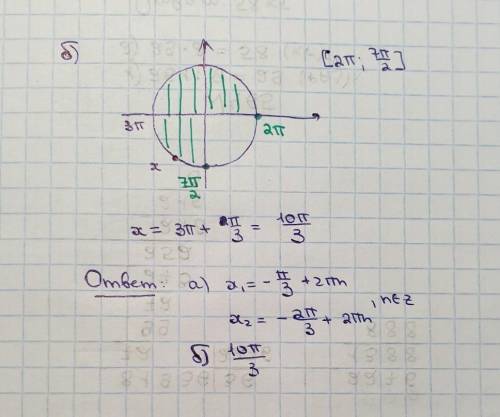 б) [2π; 7π/2]
3π 2π
x
7π/2
x = 3π + π/3 = 10π/3
Ответ: а) x₁ = -π/3 + 2πn
x₂ = -2π/3 + 2πn, n∈Z
б) 10π/3